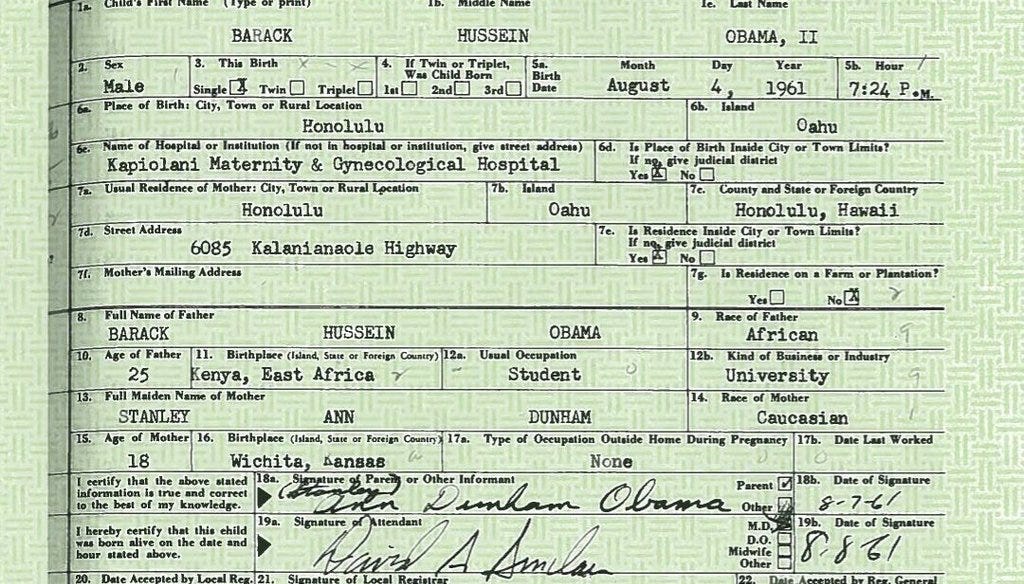 1a. Child's First Name (Type or print) 1b. Middle Name 1c. Last Name
BARACK HUSSEIN OBAMA, II
2. Sex 3. This Birth 4. If Twin or Triplet, Was Child Born 5a. Birth Date Month Day Year 5b. Hour
Male Single X Twin Triplet 1st 2nd 3rd August 4, 1961 7:24 P.M.
6a. Place of Birth: City, Town or Rural Location 6b. Island
Honolulu Oahu
6c. Name of Hospital or Institution (If not in hospital or institution, give street address) 6d. Is Place of Birth Inside City or Town Limits?
If no, give judicial district
Kapiolani Maternity & Gynecological Hospital Yes X No
7a. Usual Residence of Mother: City, Town or Rural Location 7b. Island 7c. County and State or Foreign Country
Honolulu Oahu Honolulu, Hawaii
7d. Street Address 7e. Is Residence Inside City or Town Limits?
If no, give judicial district
6085 Kalanianaole Highway Yes X No
7f. Mother's Mailing Address 7g. Is Residence on a Farm or Plantation?
Yes No X 2
8. Full Name of Father 9. Race of Father
BARACK HUSSEIN OBAMA African 9
10. Age of Father 11. Birthplace (Island, State or Foreign Country) 12a. Usual Occupation 12b. Kind of Business or Industry
25 Kenya, East Africa 2 Student 0 University 9
13. Full Maiden Name of Mother 14. Race of Mother
STANLEY ANN DUNHAM Caucasian 1
15. Age of Mother 16. Birthplace (Island, State or Foreign Country) 17a. Type of Occupation Outside Home During Pregnancy 17b. Date Last Worked
18 Wichita, Kansas None
I certify that the above stated information is true and correct to the best of my knowledge. 18a. Signature of Parent or Other Informant Parent Other 18b. Date of Signature
(Stanley) Ann Dunham Obama 8-7-61
I hereby certify that this child was born alive on the date and hour stated above. 19a. Signature of Attendant M.D. D.O. Midwife Other 19b. Date of Signature
David A Sinclair 8-8-61
20. Date Accepted by Local Reg. 21. Signature of Local Registrar 22. Date Accepted by Reg. General